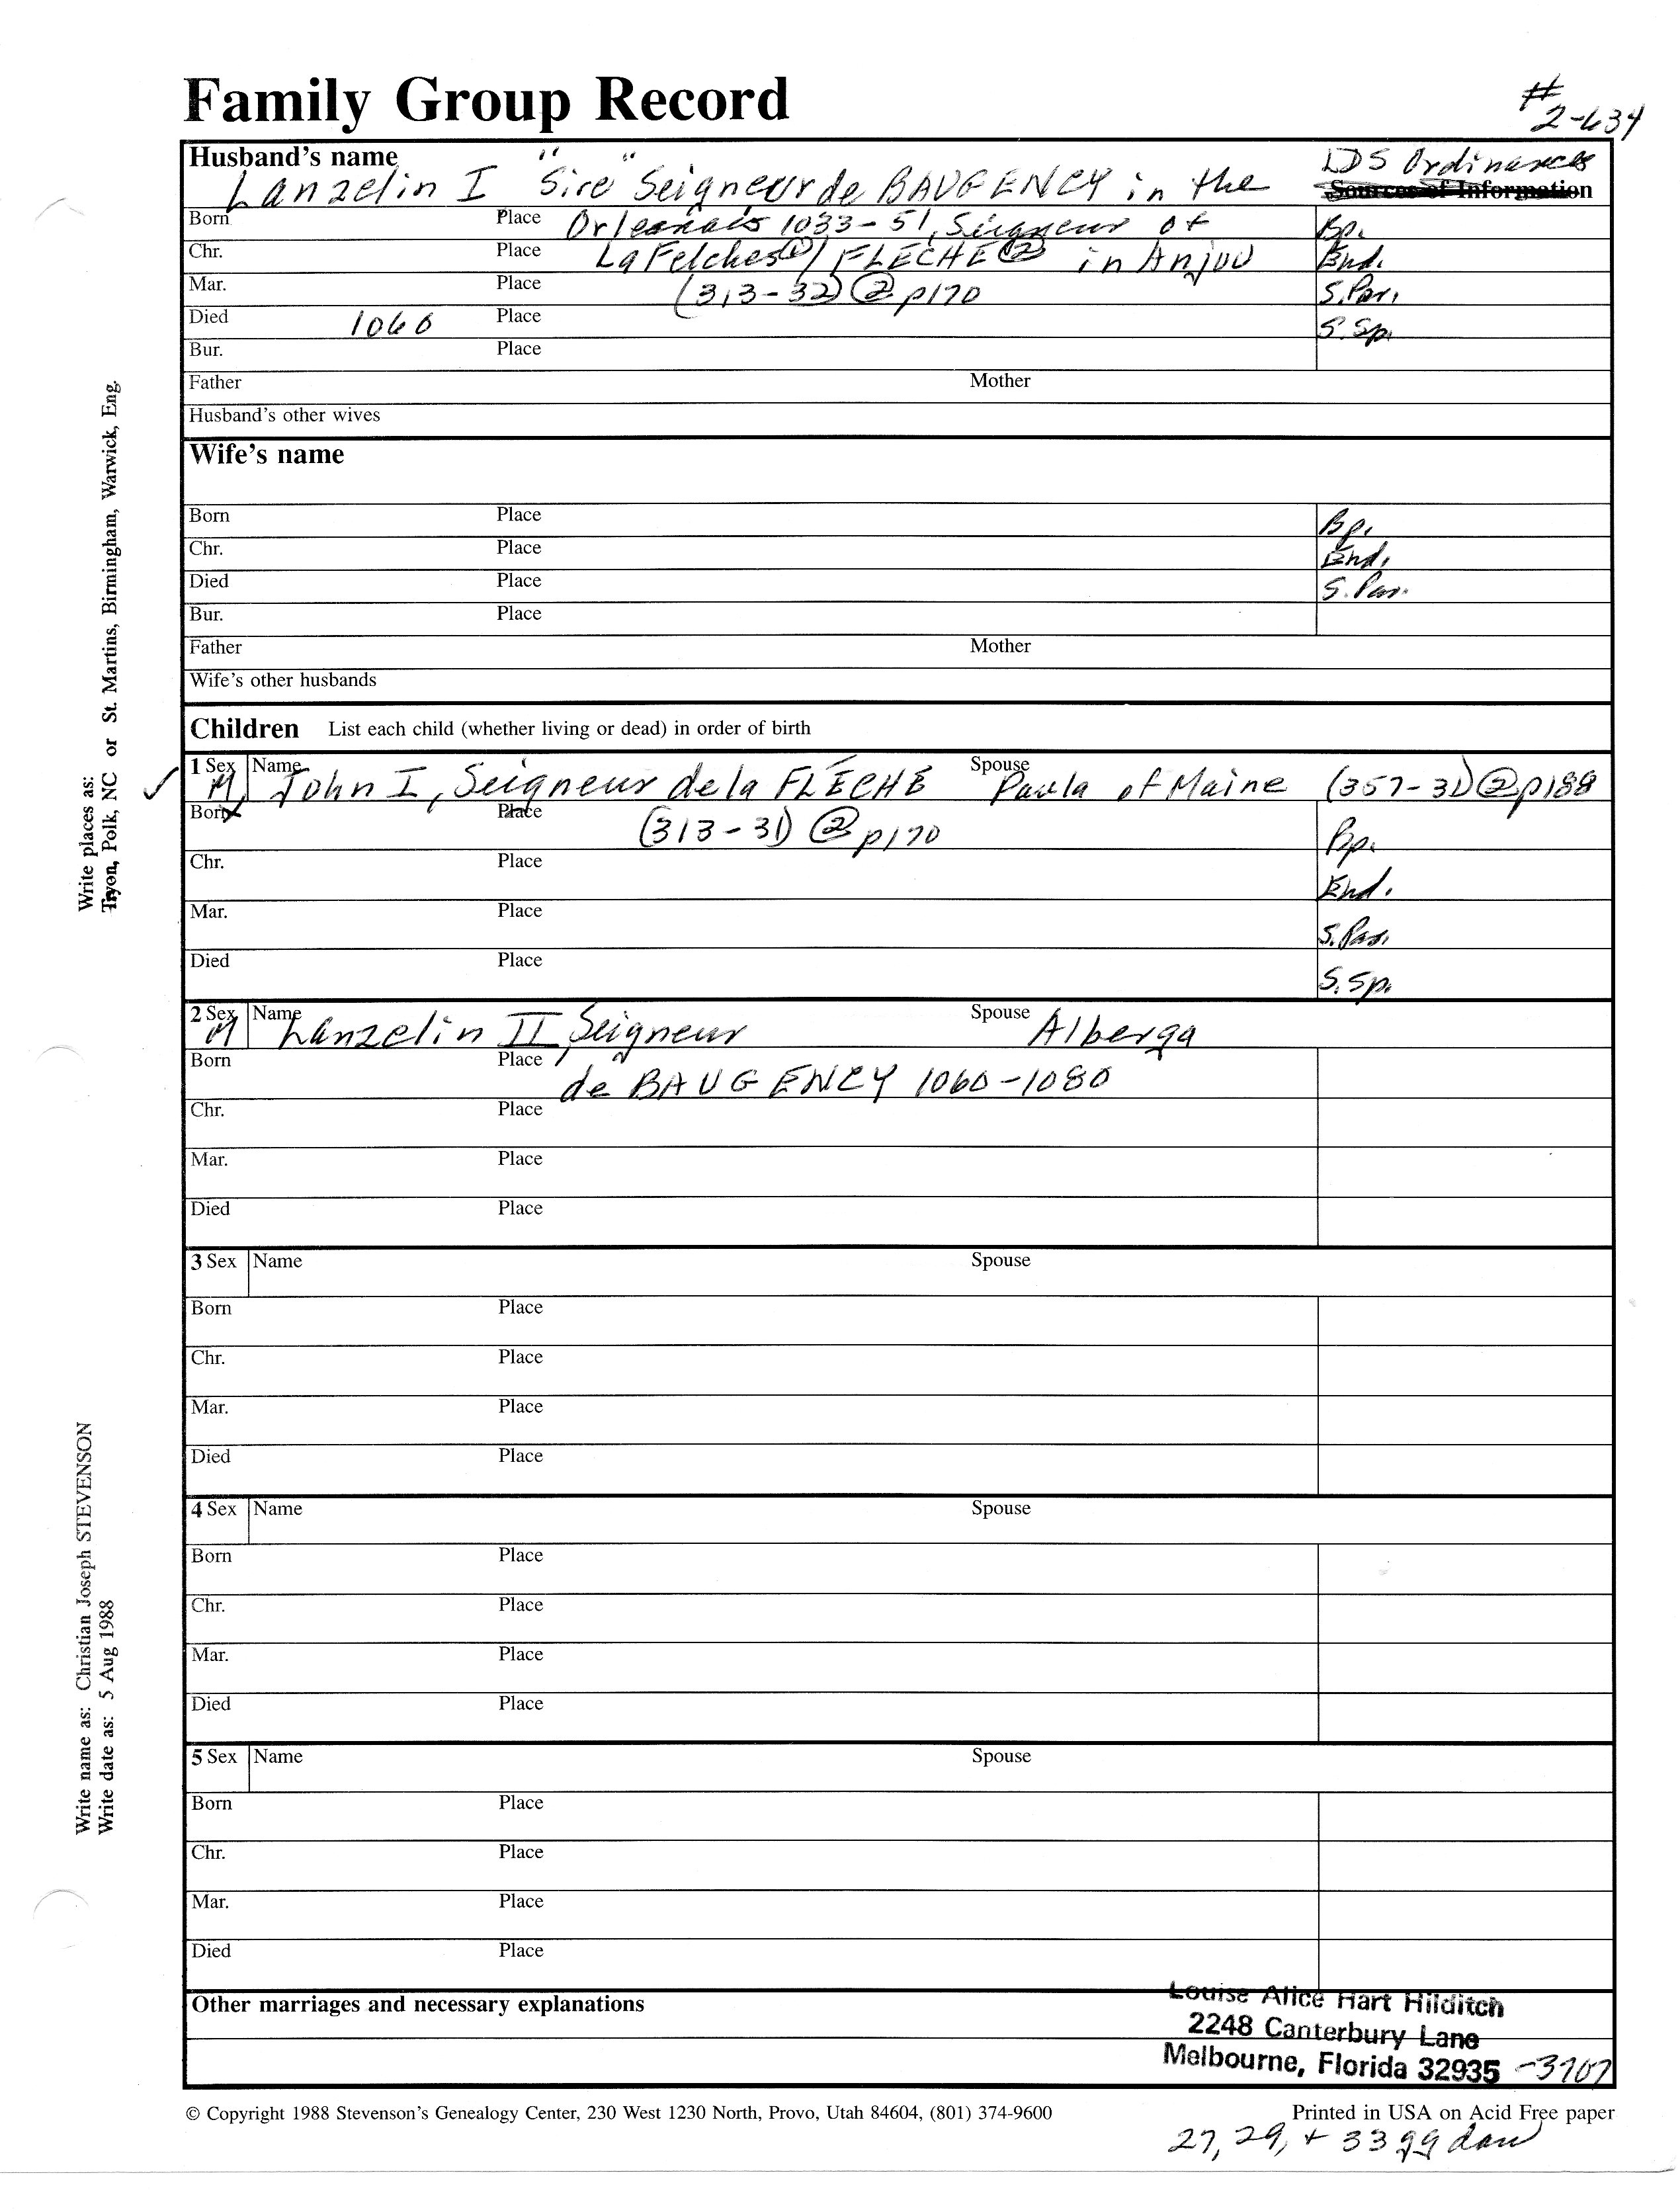 Family Group Record
#
2-634
Husband's name
Lanzelin I "Sire" Seigneur de BAUGENCY in the
LDS Ordinances
Sources of Information
Born Place Orleanais 1033-51, Seigneur of Bp.
Chr. Place La Felches① / FLECHE② in Anjou End.
Mar. Place (313-32) ② p170 S.Par.
Died 1060 Place S.Sp.
Bur. Place
Father Mother
Husband's other wives
Wife's name
Born Place Bp.
Chr. Place End.
Died Place S.Par.
Bur. Place
Father Mother
Wife's other husbands
Children List each child (whether living or dead) in order of birth
1 Sex M Name John I, Seigneur de la FLÈCHE Spouse Paula of Maine (357-31) ② p188
Born Place (313-31) ② p170 Bp.
Chr. Place End.
Mar. Place S.Par.
Died Place S.Sp.
2 Sex M Name Lanzelin II, Seigneur Spouse Alberga
Born Place de BAUGENCY 1060-1080
Chr. Place
Mar. Place
Died Place
3 Sex Name Spouse
Born Place
Chr. Place
Mar. Place
Died Place
4 Sex Name Spouse
Born Place
Chr. Place
Mar. Place
Died Place
5 Sex Name Spouse
Born Place
Chr. Place
Mar. Place
Died Place
Other marriages and necessary explanations
Louise Alice Hart Hilditch
2248 Canterbury Lane
Melbourne, Florida 32935 -3707
© Copyright 1988 Stevenson's Genealogy Center, 230 West 1230 North, Provo, Utah 84604, (801) 374-9600
Printed in USA on Acid Free paper
27, 29, + 33 gg dau
Write places as:
Tryon, Polk, NC or St. Martins, Birmingham, Warwick, Eng.
Write name as: Christian Joseph STEVENSON
Write date as: 5 Aug 1988